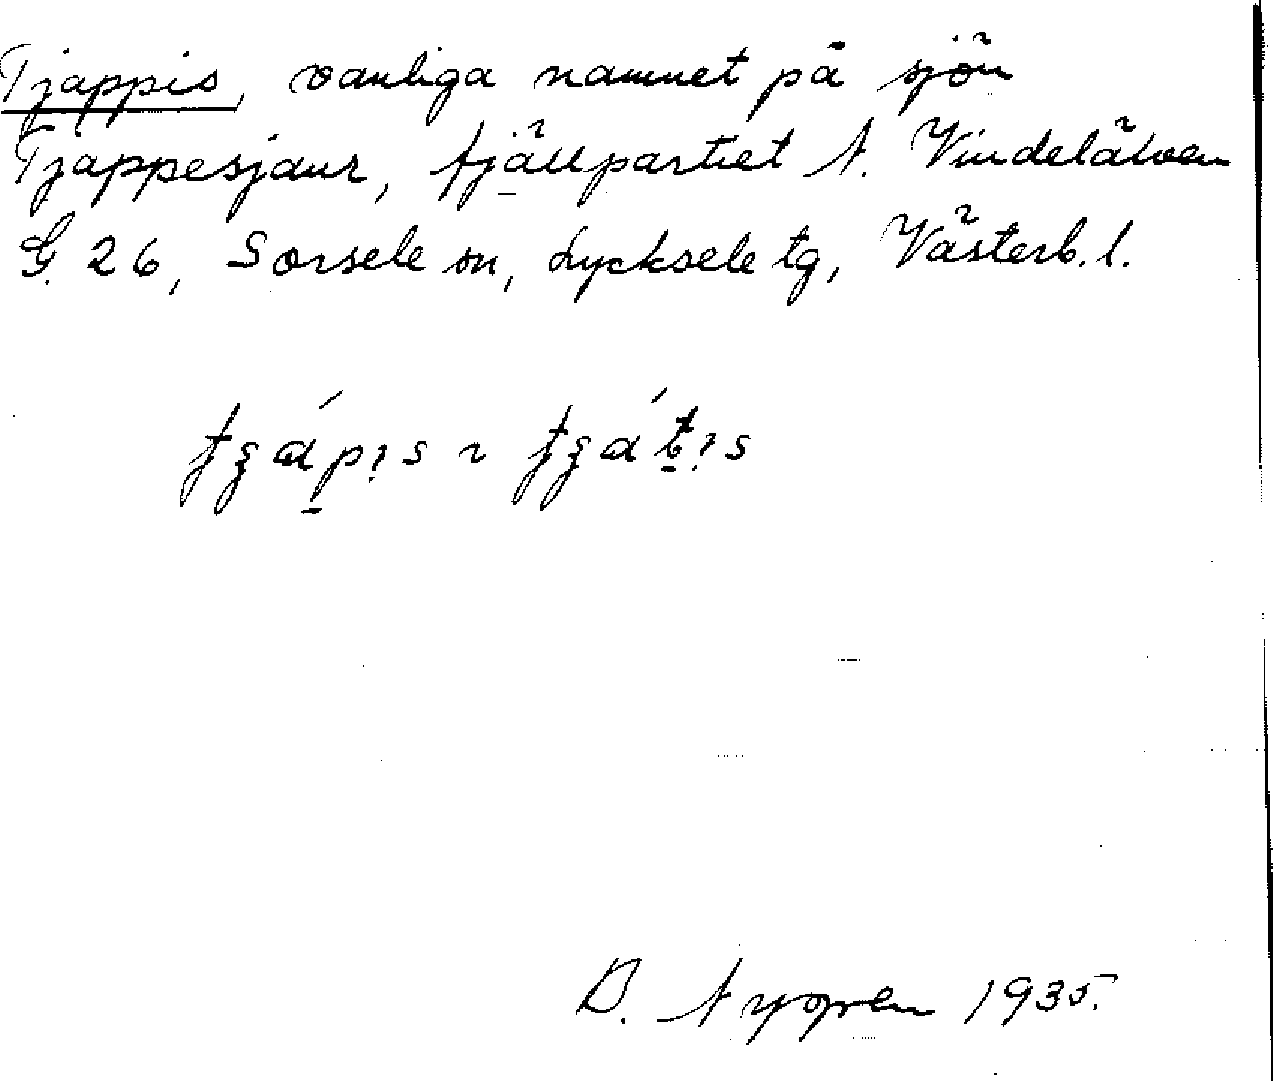 Tjappis, vanliga namnet på sjön
Tjappesjaur, fjällpartiet N. Vindelälven
G. 26, Sorsele sn, Lycksele tg, Västerb. l.
D. 1935.